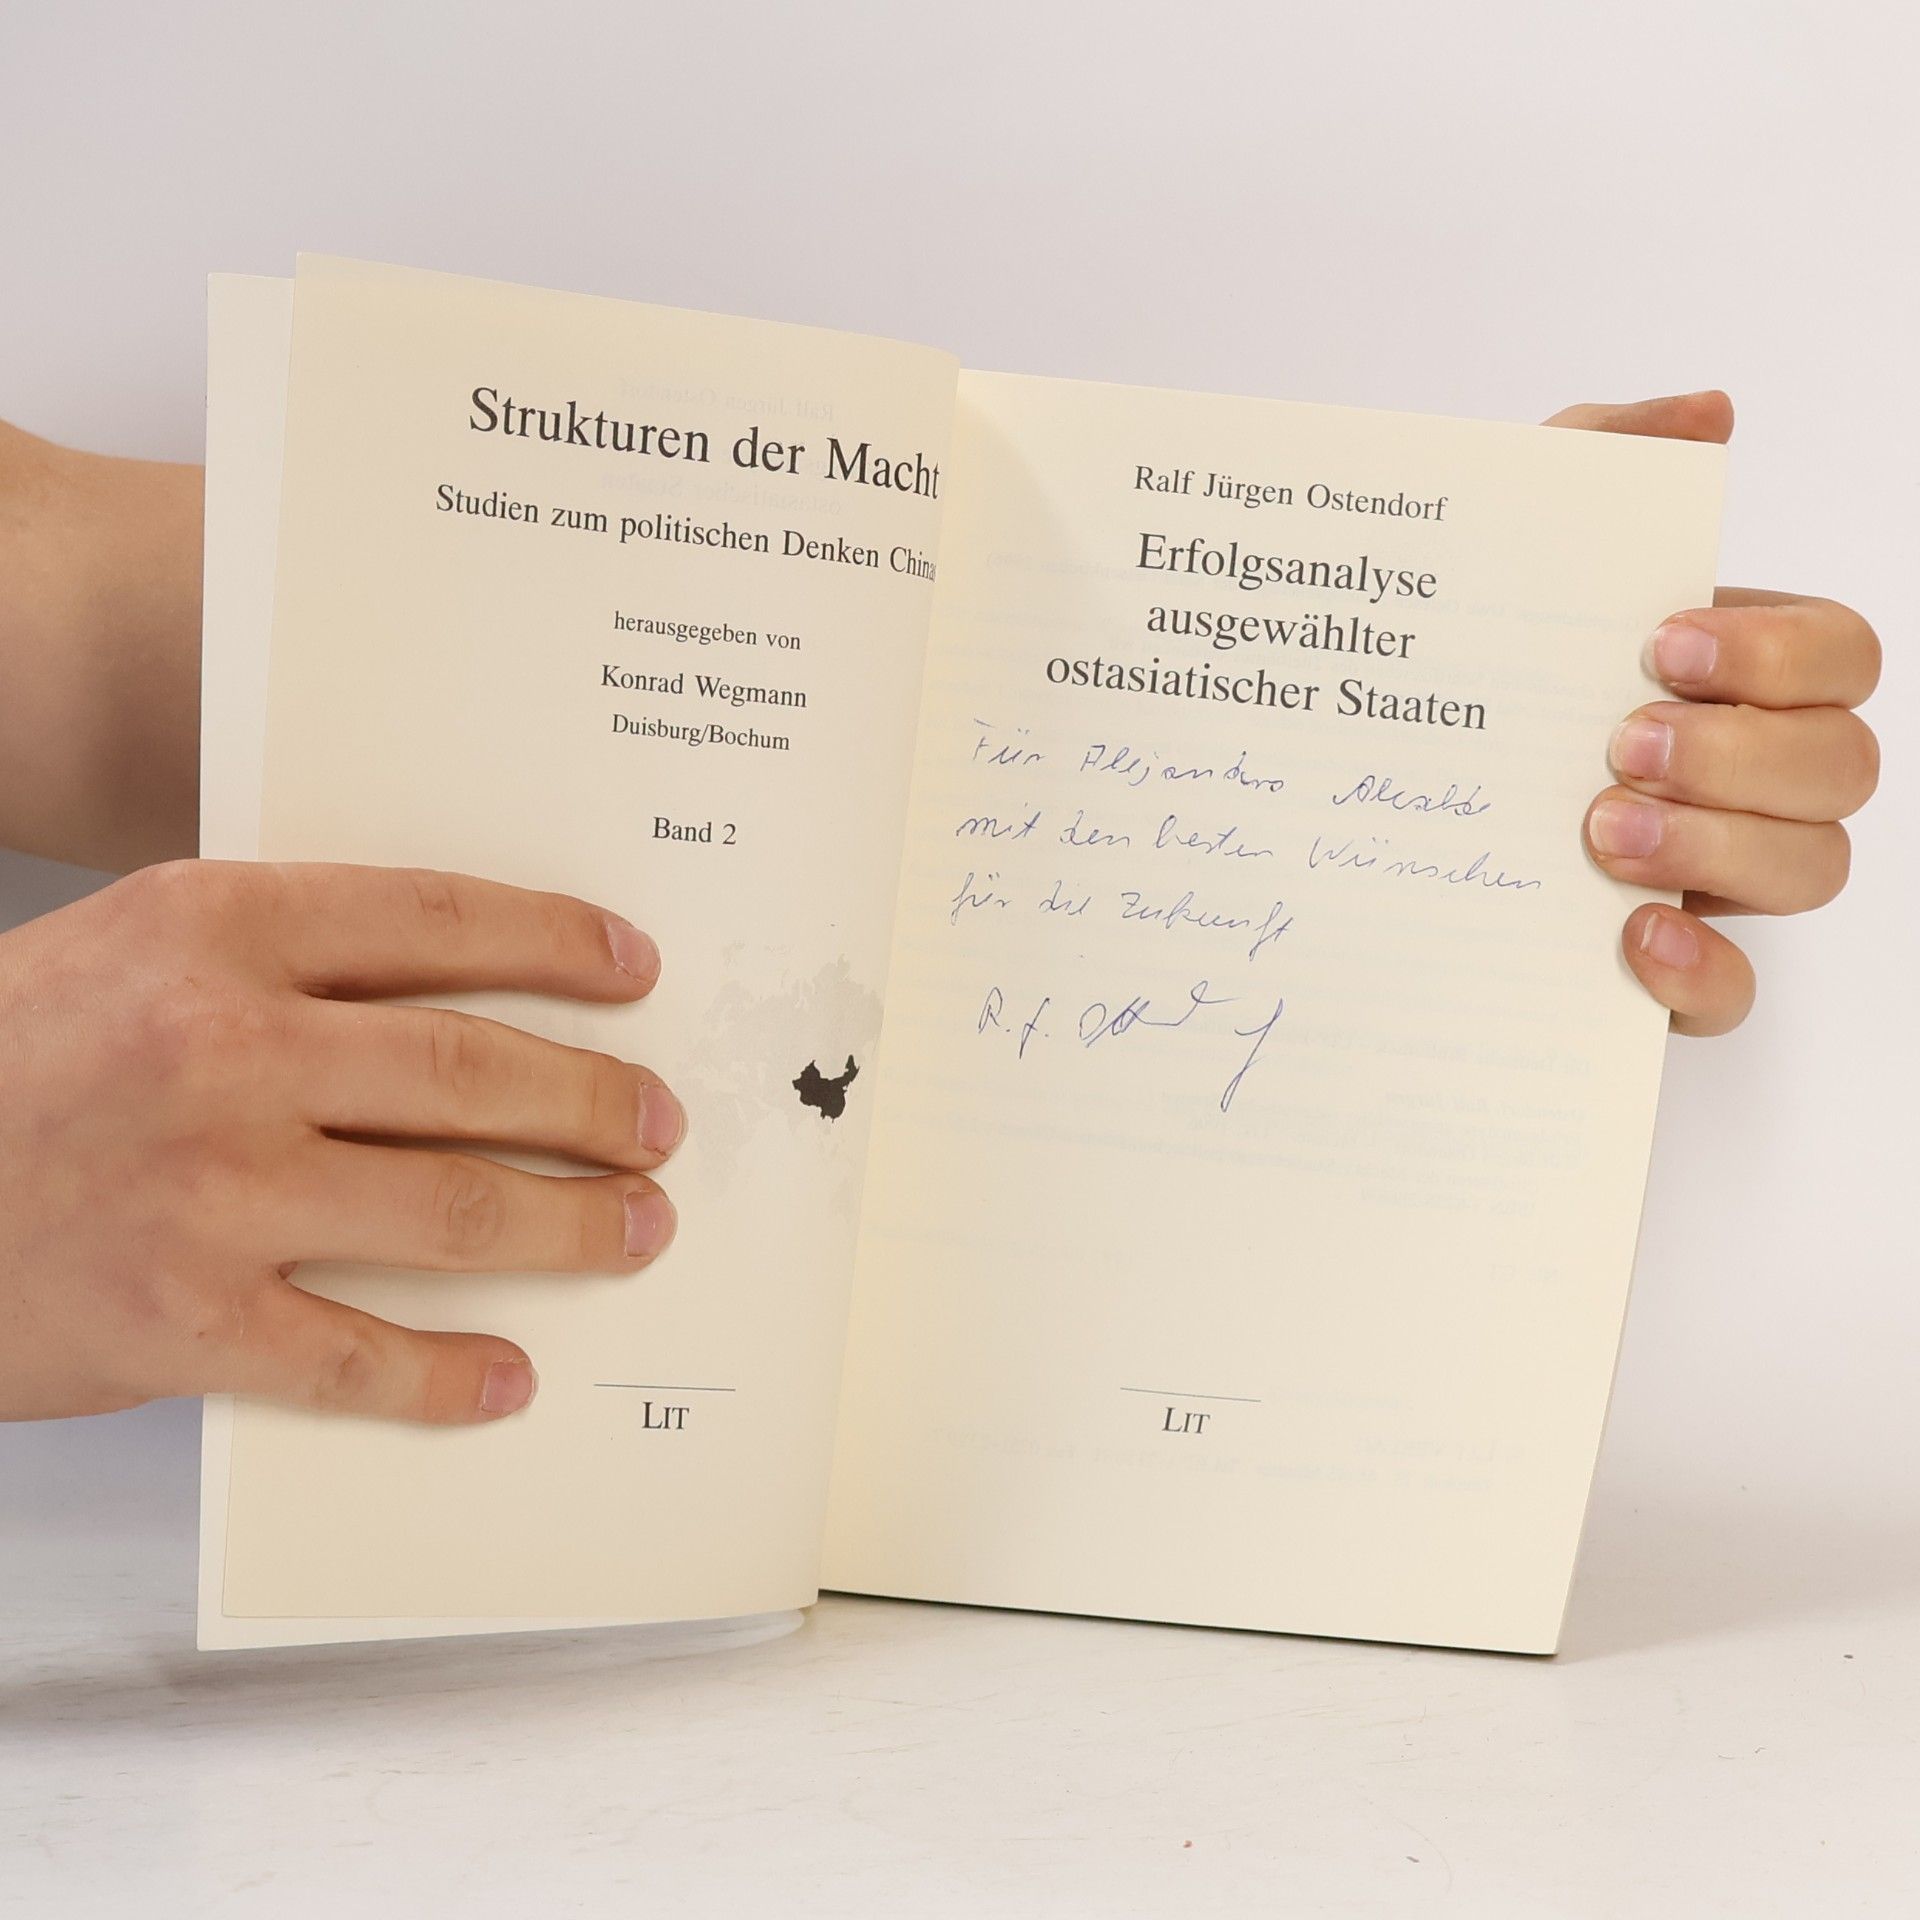 Strukturen der Macht
Studien zum politischen Denken Chinas
herausgegeben von
Konrad Wegmann
Duisburg/Bochum
Band 2
LIT
Ralf Jürgen Ostendorf
Erfolgsanalyse
ausgewählter
ostasiatischer Staaten
Für Alejandro Alcalde
mit den besten Wünschen
für die Zukunft
R. J. Ostendorf
LIT